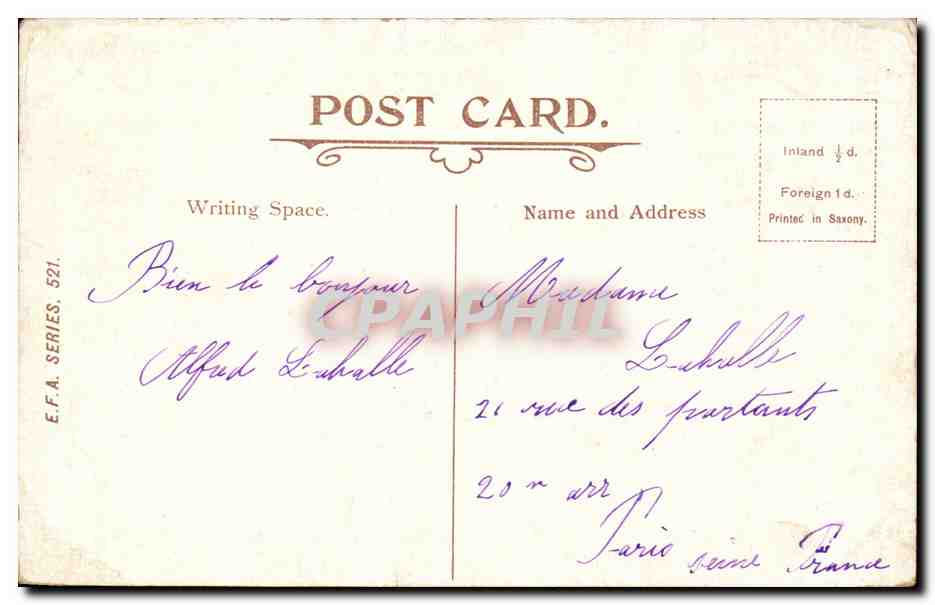 POST CARD.
Inland ½ d.
Foreign 1 d.
Printed in Saxony.
Writing Space.
Name and Address
E.F.A. SERIES. 521.
Bien le bonjour
Alfred
Madame
21 rue des partants
20m arr
Paris seine France
CPAPHIL